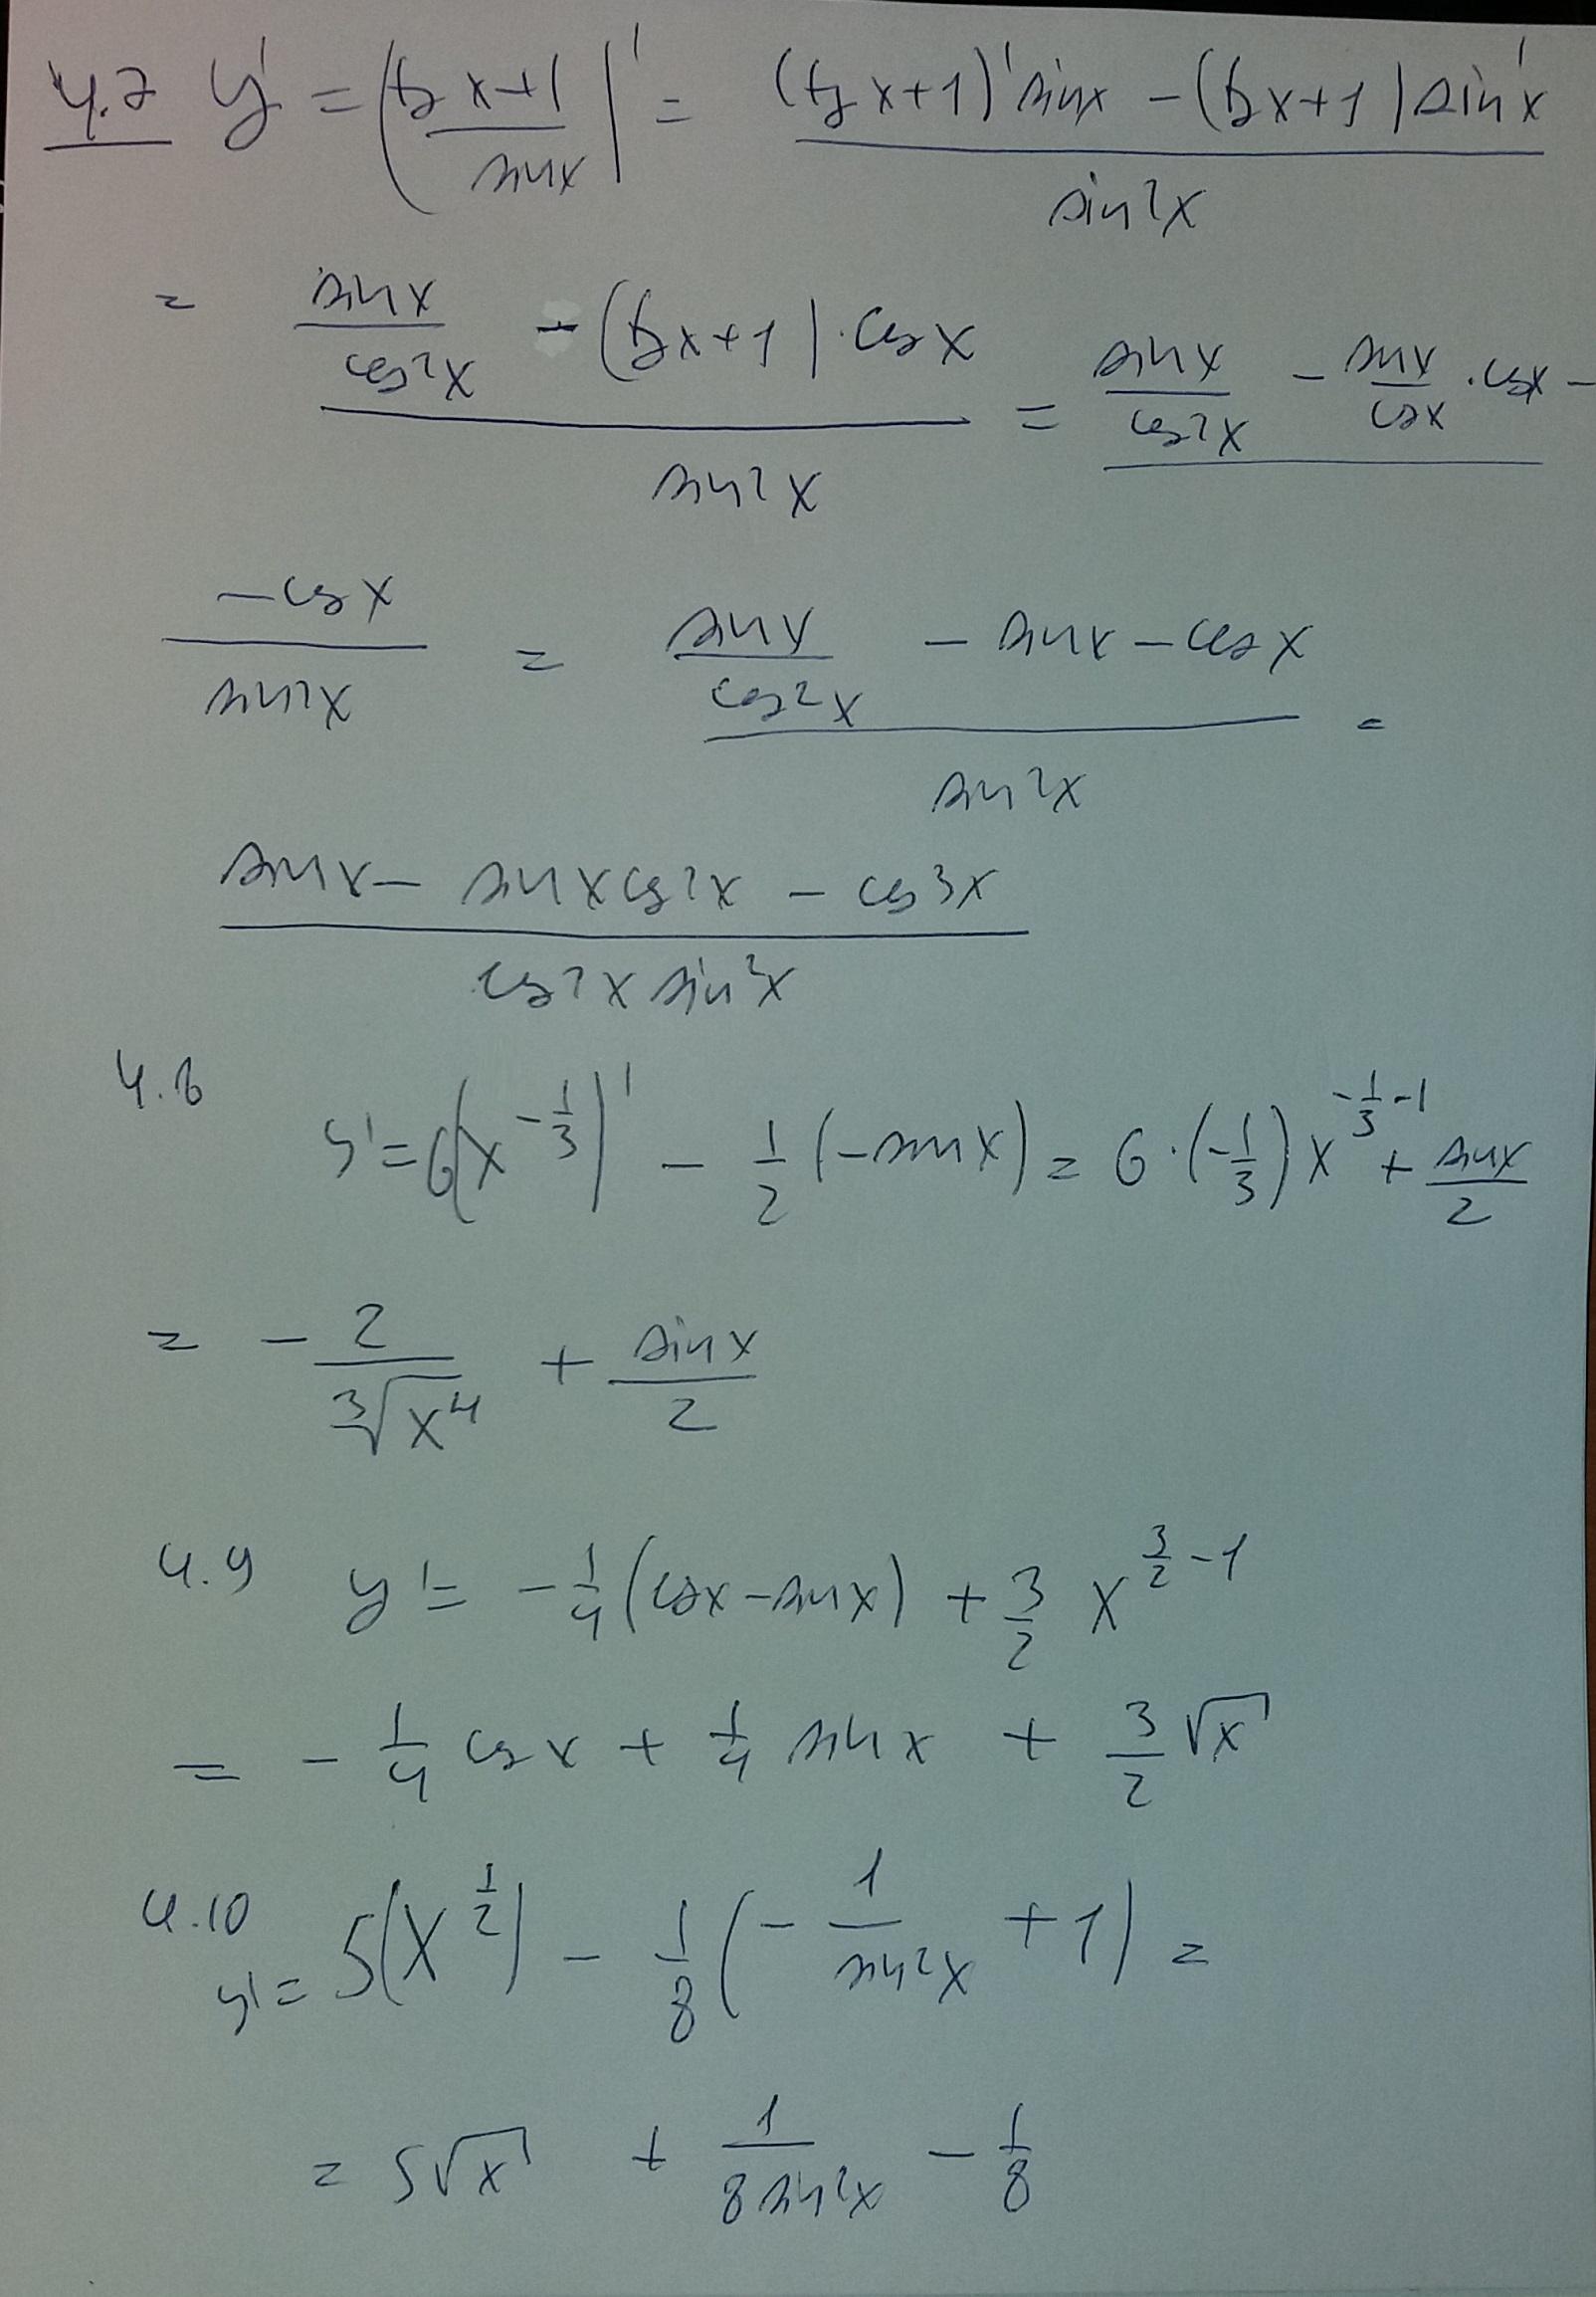 4.7 y' = (tg x+1 / sin x)' = (tg x+1)' sin x - (tg x+1) sin' x / sin²x
= sin x / cos²x - (tg x+1)·cos x / sin²x = sin x / cos²x - sin x / cos x · cos x -
-cos x / sin²x = sin x / cos²x - sin x - cos x / sin²x =
sin x - sin x cos²x - cos³x / cos²x sin²x
4.8
y' = 6(x^(-1/3))' - 1/2 (-sin x) = 6·(-1/3) x^(-1/3-1) + sin x / 2
= - 2 / ∛x⁴ + sin x / 2
4.9 y' = -1/4 (cos x - sin x) + 3/2 x^(3/2-1)
= -1/4 cos x + 1/4 sin x + 3/2 √x
4.10
y' = 5(x^(1/2)) - 1/8 (- 1 / sin²x + 1) =
= 5√x + 1 / 8 sin²x - 1/8